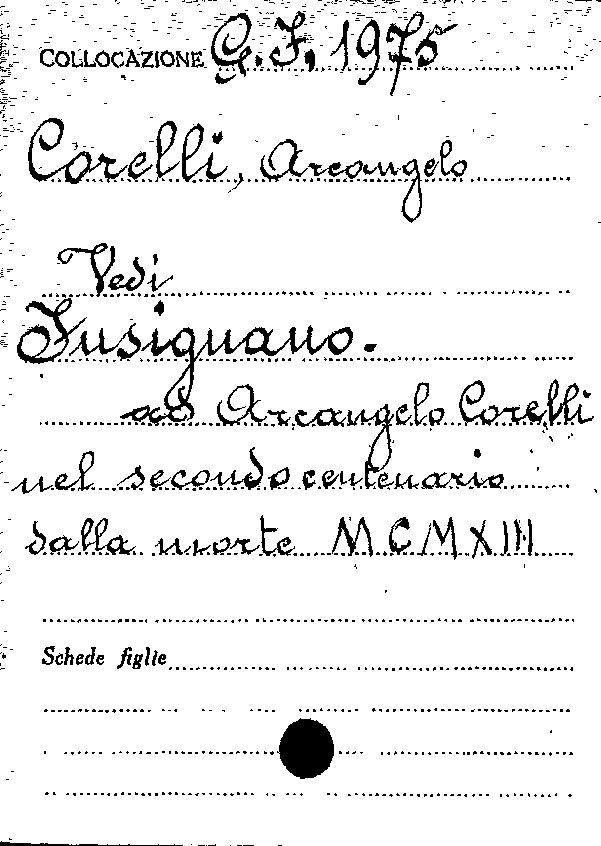 COLLOCAZIONE G. I. 1975
Corelli, Arcangelo
Vedi
Fusignano.
ad Arcangelo Corelli
nel secondo centenario
dalla morte MCMXIII
Schede figlie